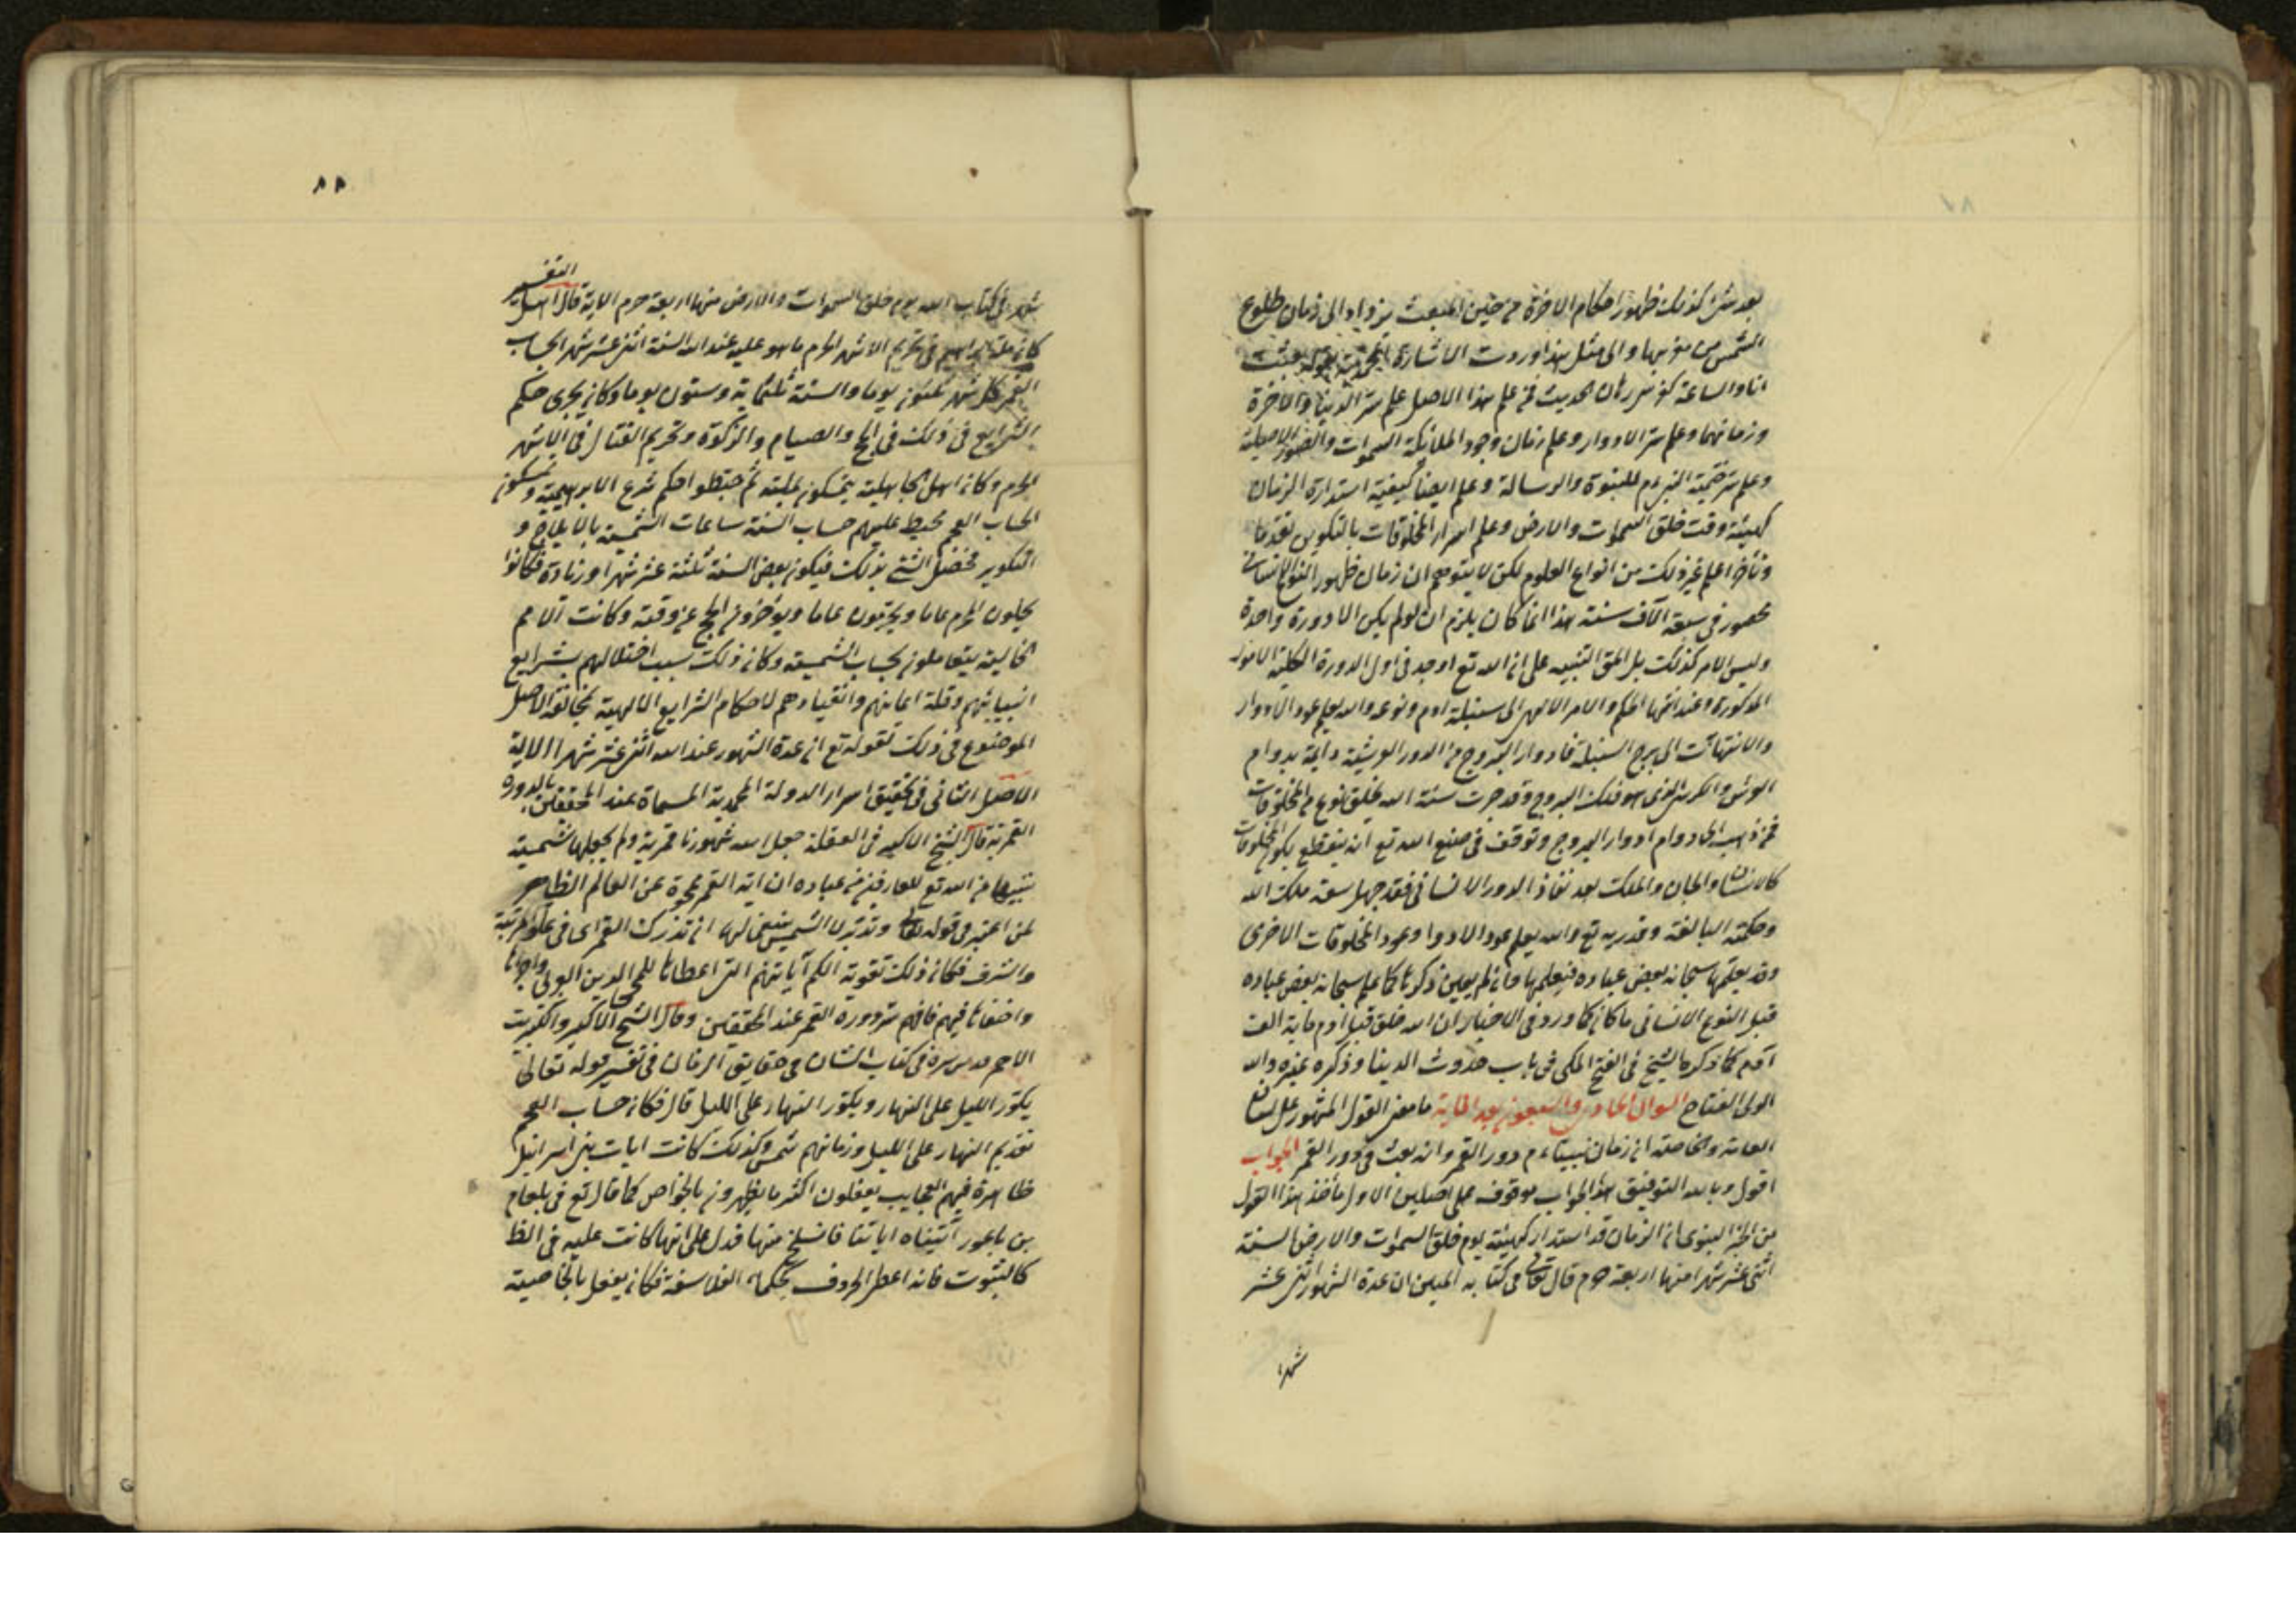 بعد شئ كذلك ظهور احكام الاخرة من حين المبعث يزداد الى زمان طلوع
الشمس من مغربها والى مثل هذا وردت الاشارة المحمدية بقوله بعثت
انا والساعة كفرسى رهان الحديث فمن علم هذا الاصل علم سر الدنيا والاخرة
وزمانهما وعلم سر الادوار وعلم زمان وجود الملائكة السموات والصور الاصلية
وعلم سر ختمية النبى م للنبوة والرسالة وعلم ايضا كيفية استدارة الزمان
كهيئة وقت خلق السموات والارض وعلم اسرار المخلوقات بالتكوين تقدما
وتأخرا علم غير ذلك من انواع العلوم لكن لا يتوهم ان زمان ظهور النوع الانسانى
محصور فى سبعة آلاف سنة هذا انما كان يلزم ان لو لم يكن الا دورة واحدة
وليس الامر كذلك بل الحق التنبيه على ان الله تع اوجد فى اول الدورة الكلية
المذكورة وعند انتهاء الحكم والامر الالهى الى سنبلة ادم ونوعه والله يعلم عدد الادوار
والانتهائت الى برج السنبلة فادوار البروج من الدور العرشية دايمة بدوام
العرش والكرسى الذى هو فلك البروج وقد جرت سنة الله بخلق نوع من المخلوقات
فمن ذهب الى دوام ادوار البروج وتوقف فى صنع الله تع ان ينقطع بكون المخلوقات
كالانسان والجان والملك بعد نفاذ الدور الانسانى فقد جهل سعة ملك الله
وحكمته البالغة وقدرته تع والله يعلم عدد الادوار وعدد المخلوقات الاخرى
وقد يعلمها سبحانه بعض عباده فيعلمها وان لم يعين ذكرها كما علم سبحانه بعض عباده
قبل النوع الانسانى ما كان كما ورد فى الاخبار ان الله خلق قبل ادم ماية الف
آدم كما ذكره الشيخ فى الفتح المكى فى باب حدوث الدينا وذكره غيره والله
الولى الفتاح السوال الحادى والسبعون بعد الماية ما معنى القول المشهور على لسان
العامة والخاصة ان زمان نبيناء م دور القمر وانه بعث فى دور القمر الجواب
اقول وبالله التوفيق هذا الجواب موقوف على اصلين الاول مأخذ هذا القول
من الخبر النبوى ان الزمان قد استدار كهيئته يوم خلق السموات والارض السنة
اثنى عشر شهرا منها اربعة حرم قال تعالى فى كتابه المبين ان عدة الشهور اثنى عشر
شهرا
٨٨
التفسير
شهرا فى كتاب الله يوم خلق السموات والارض منها اربعة حرم الاية قال اهل
كان ملة ابراهيم فى تحريم الاشهر الحرم ما هو عليه عند الله السنة اثنى عشر شهرا بحساب
القمر كل شهر ثلثون يوما والسنة ثلثماية وستون يوما وكان يجرى حكم
الشرايع فى ذلك فى الحج والصيام والزكوة وتحريم القتال فى الاشهر
الحرم وكان اهل الجاهلية يتمسكون بملته ثم خبطوا حكم شرع الابراهيمية وتمسكون
الحساب العجم يخبط عليهم حساب السنة ساعات الشمسية بالايلاج و
التكوير فحصل الشئ بذلك فيكون بعض السنة ثلثة عشر شهرا وزيادة فكانوا
يحلون الحرم عاما ويحرمون عاما ويؤخرون الحج عن وقته وكانت الامم
الخالية يتعاملون بحساب الشمسية وكان ذلك سبب اختلالهم بشرايع
انبيائهم وقلة ايمانهم وانقيادهم لاحكام الشرايع الالهية لمخالفة الاصل
الموضوع فى ذلك لقوله تع ان عدة الشهور عند الله اثنى عشر شهرا الاية
الاصل الثانى فى تحقيق اسرار الدولة المحمدية المسماة عند المحققين بالدورة
القمرية قال الشيخ الاكبر فى العقلة جعل الله شهورنا قمرية ولم يجعلها شمسية
تنبيها من الله تع للعارفين من عباده ان اية القمر ممحوة عن العالم الظاهر
لمن اعتبر فى قوله تعالى وتدبر لا الشمس ينبغى لها ان تدرك القمر اى فى علو المرتبة
والشرف فكان ذلك تقوية الكم آياتهم التى اعطاها للمحمديين العربى واجراها
واخفاها فيهم فافهم سر دورة القمر عند المحققين وقال الشيخ الاكبر والكبريت
الاحمر قدس سره فى كتاب الشان فى حقايق الزمان فى تفسير قوله تعالى
يكور الليل على النهار ويكور النهار على الليل قال فكان حساب العجم
تقديم النهار على الليل وزمانهم شمس وكذلك كانت ايات بنى اسرائيل
ظاهرة فيهم العجايب يعقلون اكثر ما يظهرون بالخواص كما قال تع فى بلعام
بن باعور آتيناه اياتنا فانسلخ منها فدل على انها كانت عليه فى الظ
كالثبوت فانه اعطى الحروف بحكماء الفلاسفة فكان يفعل بالخاصية